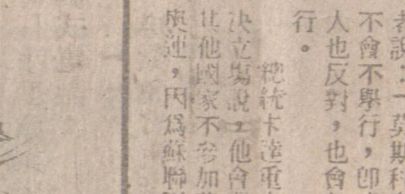 者說：「莫斯科
不會不舉行，卽
人也反對，也會
行。
總統卡達重
決立場說，他會
其他國家不參加
奧運，因爲蘇聯